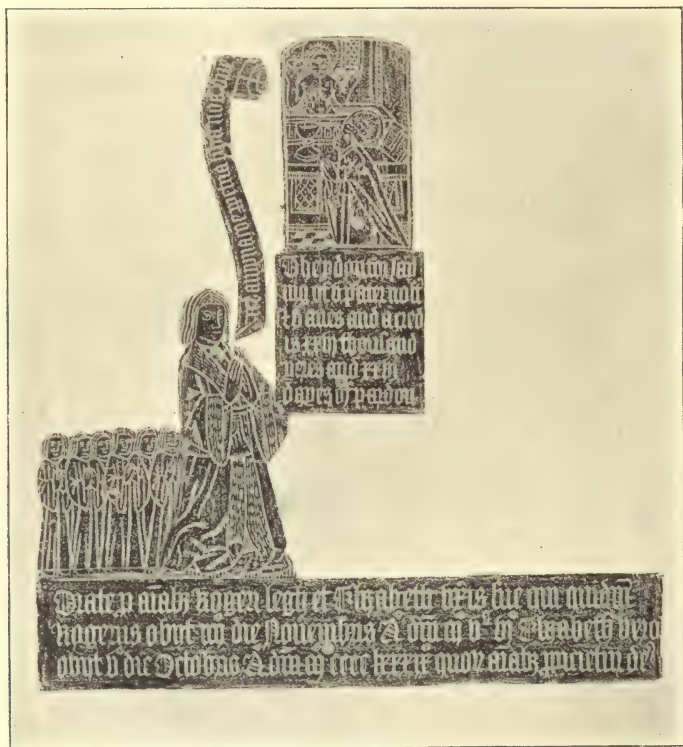 dampnacione perpetua libera nos
The pdon for sai
ing of v pater nost
& v aues and a cred
is xxvi thousand
yeres and xxvi
dayes of pardon
Orate p aiabz Rogeri legh et Elizabeth uxis sue qui quidm
Rogerus obiit iiii die Nouembris A dni m vc vi Elizabeth vero
obiit v die Octobris A dni m cccc lxxxix quor aiabz ppicietur de